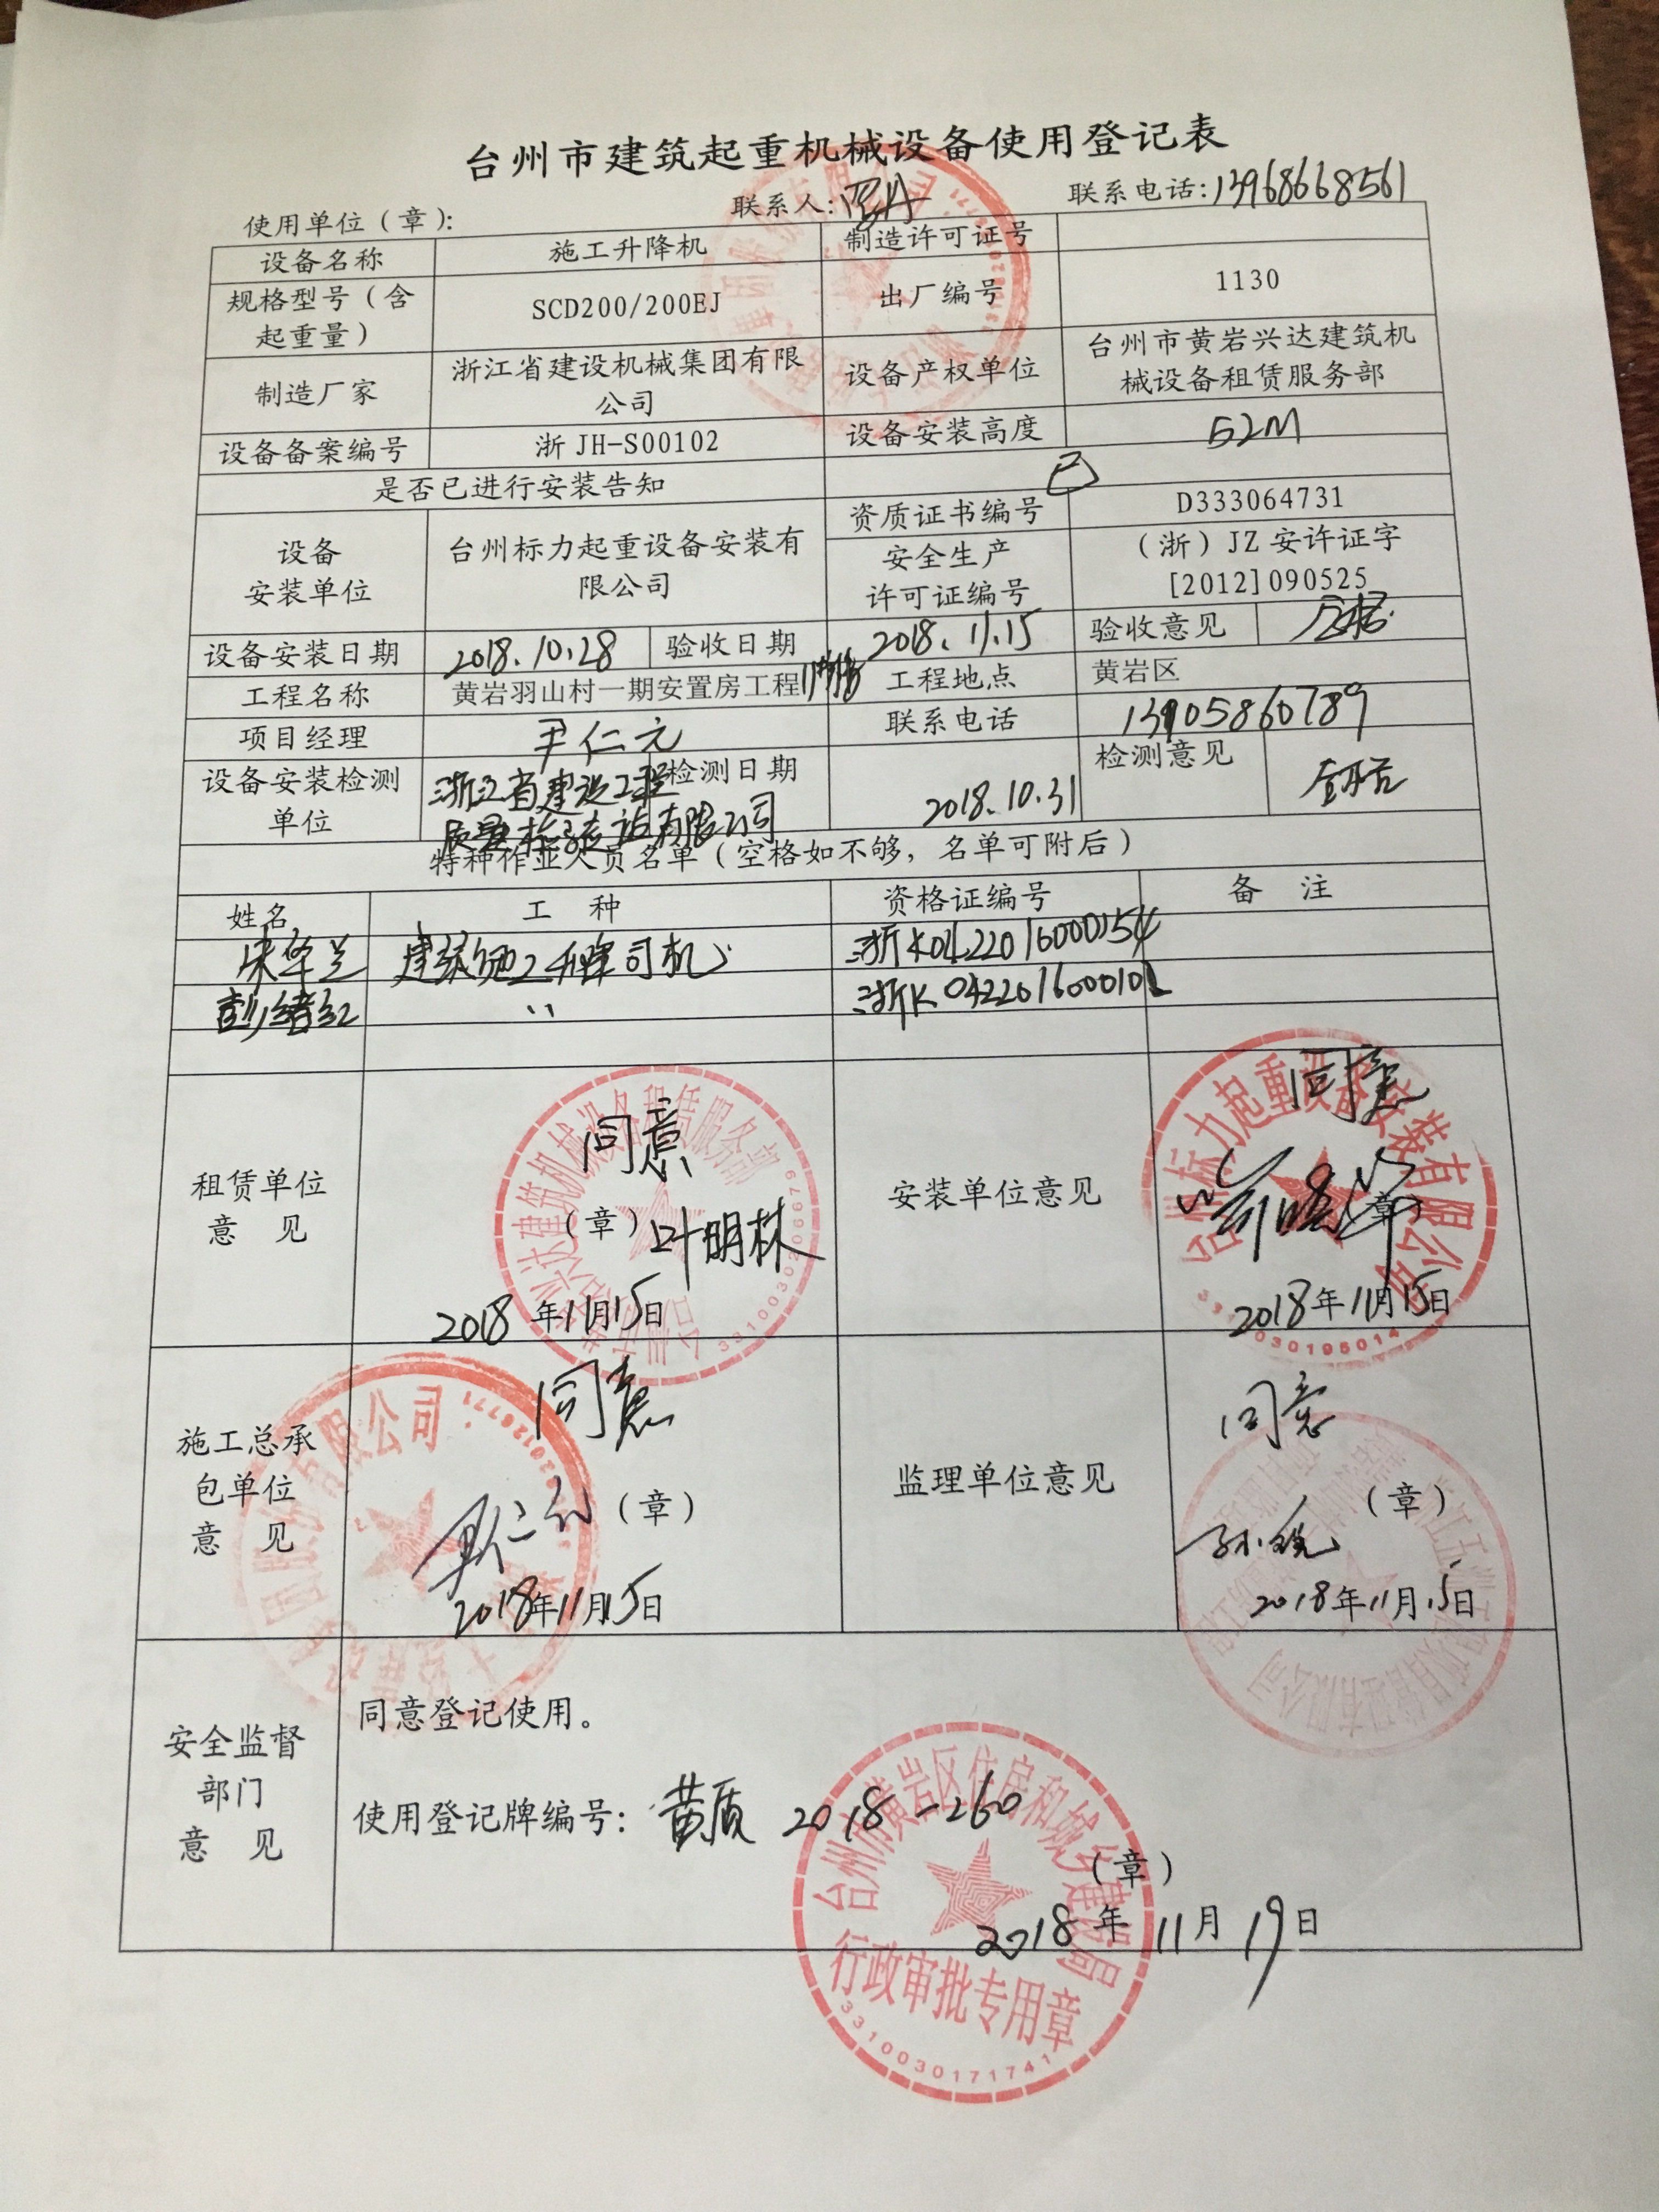 台州市建筑起重机械设备使用登记表
使用单位（章）： 联系人： 联系电话：13968668561
设备名称 施工升降机 制造许可证号
规格型号（含起重量） SCD200/200EJ 出厂编号 1130
制造厂家 浙江省建设机械集团有限公司 设备产权单位 台州市黄岩兴达建筑机械设备租赁服务部
设备备案编号 浙 JH-S00102 设备安装高度 52M
是否已进行安装告知 已
设备安装单位 台州标力起重设备安装有限公司 资质证书编号 D333064731
安全生产许可证编号 （浙）JZ 安许证字[2012]090525
设备安装日期 2018.10.28 验收日期 2018.11.15 验收意见 合格
工程名称 黄岩羽山村一期安置房工程 工程地点 黄岩区
项目经理 尹仁元 联系电话 13905860789
设备安装检测单位 浙江省建设工程质量检验站有限公司 检测日期 2018.10.31 检测意见 合格
特种作业人员名单（空格如不够，名单可附后）
姓名 工 种 资格证编号 备 注
建筑施工升降司机 浙K0422016000154
彭绪红 〃 浙K0422016000102
租赁单位意 见 同意
（章） 叶明林
2018年11月15日
安装单位意见 同意
（章）
2018年11月15日
施工总承包单位意 见 同意
（章）
2018年11月15日
监理单位意见 同意
（章）
2018年11月15日
安全监督部门意 见
同意登记使用。
使用登记牌编号：黄质 2018-260
（章）
2018年11月19日
台州市黄岩区住房和城乡建设局
行政审批专用章
3310030171741
台州标力起重设备安装有限公司
台州市黄岩兴达建筑机械设备租赁服务部
3310030206679